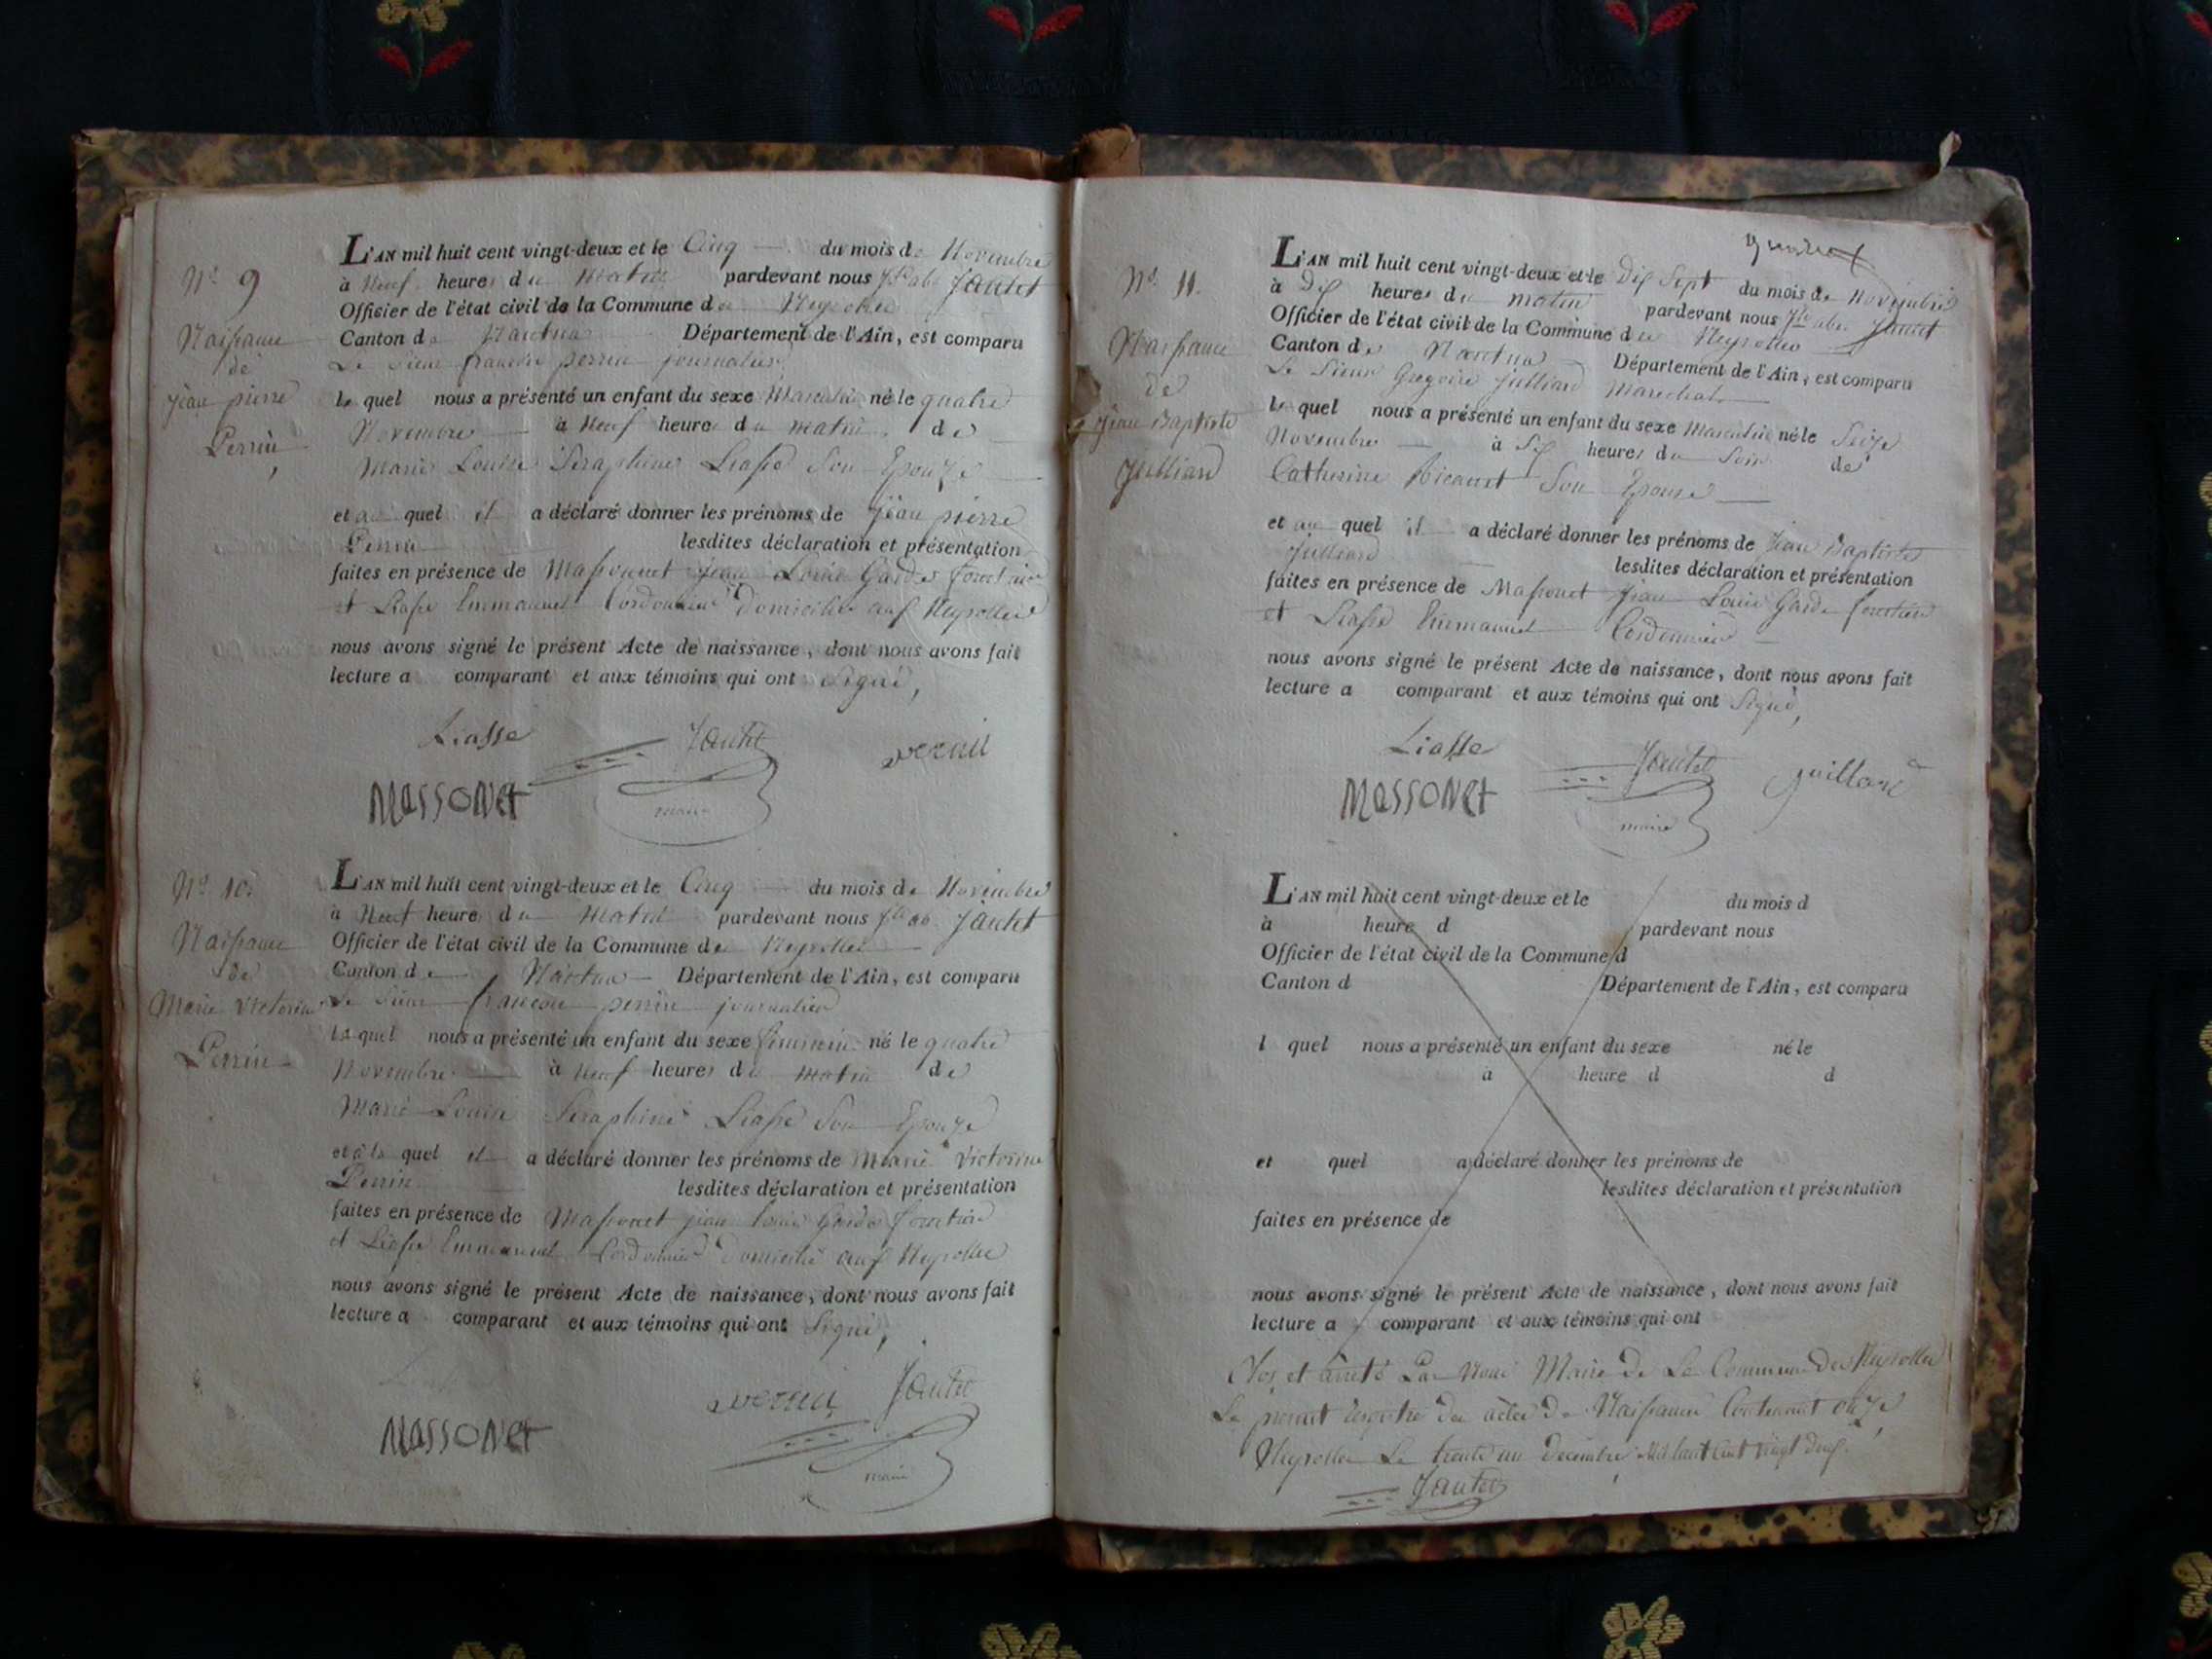 Nº 9
Naissance
de
jean pierre
Perrin
L'AN mil huit cent vingt-deux et le Cinq du mois de Novembre
à Neuf heures du matin pardevant nous Jautet
Officier de l'état civil de la Commune des Neyrolles
Canton de Nantua Département de l'Ain, est comparu
Le Sieur francois perrin journalier
le quel nous a présenté un enfant du sexe Masculin né le quatre
Novembre à Neuf heures du matin de
Marie Louise Seraphine Liasse Son Epouze
et au quel il a déclaré donner les prénoms de jean pierre
Perrin lesdites déclaration et présentation
faites en présence de Massonnet Jean Louis Garde forestier
et Liasse Emmanuel Cordonnier domiciliés aux Neyrolles
nous avons signé le présent Acte de naissance, dont nous avons fait
lecture a comparant et aux témoins qui ont Signé,
Liasse Jautet
Massonet maire
Nº 10.
Naissance
de
Marie Victorine
Perrin
L'AN mil huit cent vingt-deux et le Cinq du mois de Novembre
à Neuf heures du Matin pardevant nous Jautet
Officier de l'état civil de la Commune des Neyrolles
Canton de Nantua Département de l'Ain, est comparu
Le Sieur francois perrin journalier
le quel nous a présenté un enfant du sexe feminin né le quatre
Novembre à Neuf heures du matin de
Marie Louise Seraphine Liasse Son Epouze
et à la quel il a déclaré donner les prénoms de Marie Victorine
Perrin lesdites déclaration et présentation
faites en présence de Massonet jean Louis Garde forestier
et Liasse Emmanuel Cordonnier domiciliés aux Neyrolles
nous avons signé le présent Acte de naissance, dont nous avons fait
lecture a comparant et aux témoins qui ont Signé,
Jautet
Massonet maire
Nº 11.
Naissance
de
Jean Baptiste
Julliard
L'AN mil huit cent vingt-deux et le Dix Sept du mois de Novembre
à Dix heures du matin pardevant nous Jautet
Officier de l'état civil de la Commune des Neyrolles
Canton de Nantua Département de l'Ain, est comparu
Le Sieur Gregoire Julliard Marechal
le quel nous a présenté un enfant du sexe Masculin né le Seize
Novembre à Six heures du Soir de
Catherine Son Epouse
et au quel il a déclaré donner les prénoms de Jean Baptiste
Julliard lesdites déclaration et présentation
faites en présence de Massonet Jean Louis Garde forestier
et Liasse Emmanuel Cordonnier
nous avons signé le présent Acte de naissance, dont nous avons fait
lecture a comparant et aux témoins qui ont Signé,
Liasse Jautet
Massonet maire
L'AN mil huit cent vingt-deux et le du mois d
à heure d pardevant nous
Officier de l'état civil de la Commune d
Canton d Département de l'Ain, est comparu
l quel nous a présenté un enfant du sexe né le
à heure d d
et quel a déclaré donner les prénoms de
lesdites déclaration et présentation
faites en présence de
nous avons signé le présent Acte de naissance, dont nous avons fait
lecture a comparant et aux témoins qui ont
Clos et arrêté Par Nous Maire de La Commune des Neyrolles
Le present registre des actes de Naissance Contenant onze
Neyrolles Le trente un decembre Mil huit Cent vingt deux.
Jautet